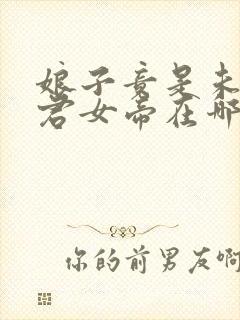 娘子竟是未
君女帝在哪
你的前男友啊